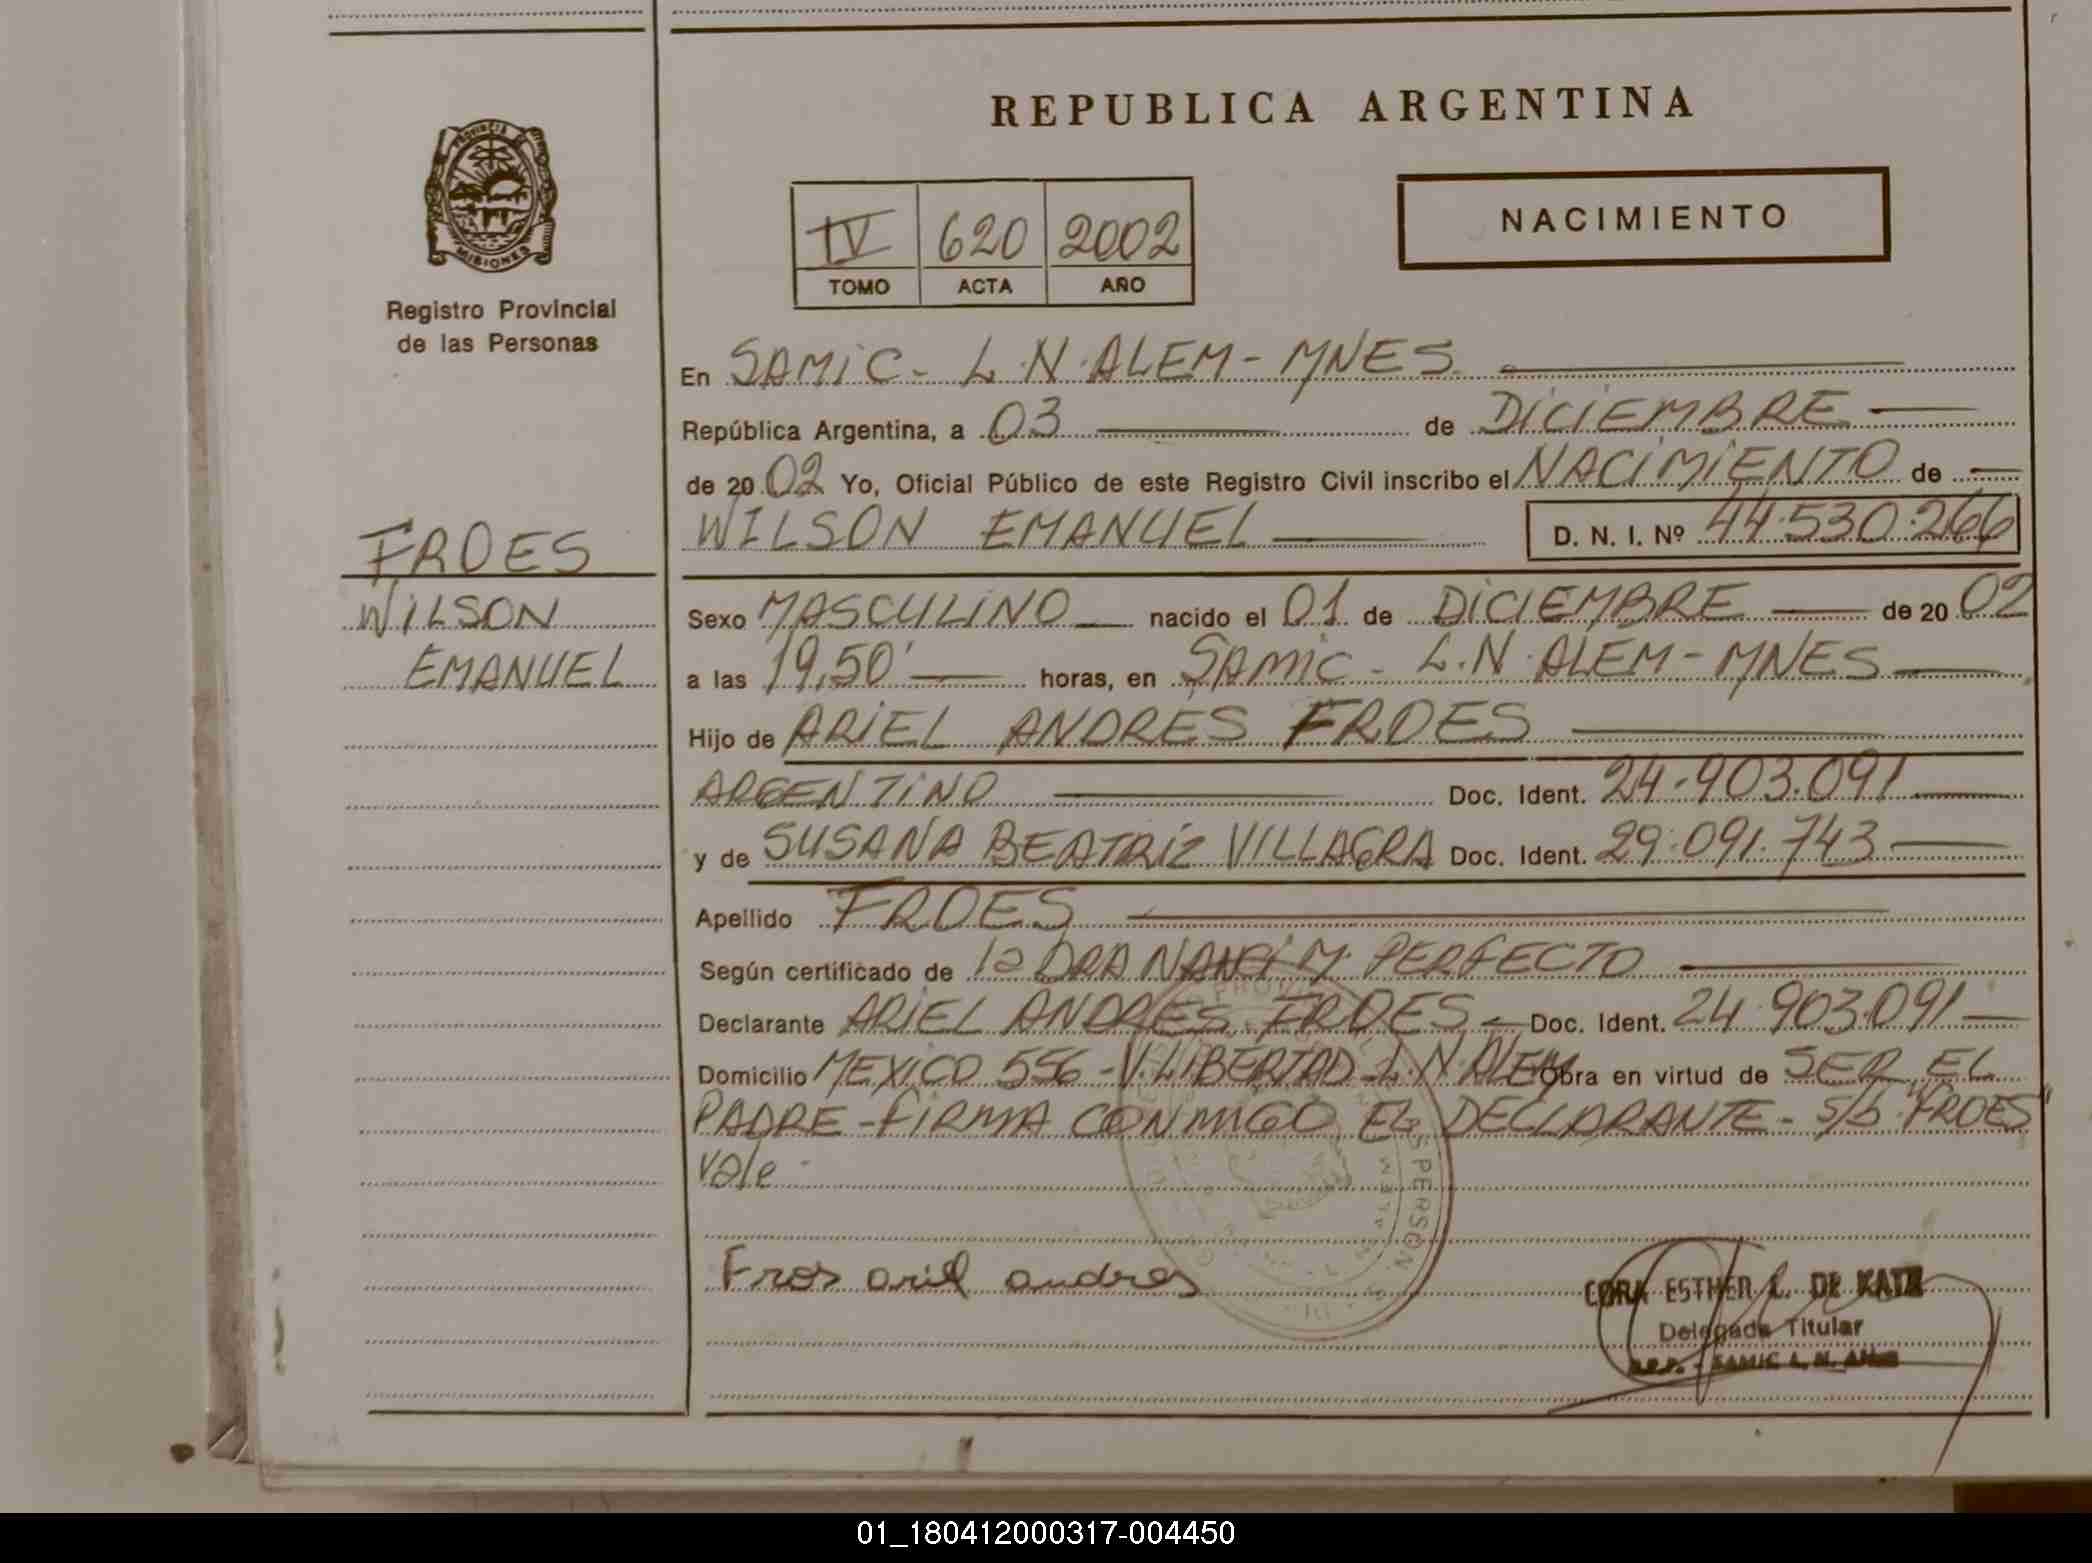 REPUBLICA ARGENTINA
PROVINCIA DE MISIONES
Registro Provincial
de las Personas
IV 620 2002
TOMO ACTA AÑO
NACIMIENTO
En SAMIC - L.N.ALEM - MNES.
República Argentina, a 03 de DICIEMBRE
de 2002 Yo, Oficial Público de este Registro Civil inscribo el NACIMIENTO de
WILSON EMANUEL D. N. I. Nº 44.530.266
FROES
WILSON
EMANUEL
Sexo MASCULINO nacido el 01 de DICIEMBRE de 2002
a las 19,50' horas, en SAMIC - L.N.ALEM - MNES
Hijo de ARIEL ANDRES FROES
ARGENTINO Doc. Ident. 24.903.091
y de SUSANA BEATRIZ VILLAGRA Doc. Ident. 29.091.743
Apellido FROES
Según certificado de la DRA M. PERFECTO
Declarante ARIEL ANDRES FROES - Doc. Ident. 24.903.091
Domicilio MEXICO 556 - V. LIBERTAD - L.N. ALEM Obra en virtud de SER EL
PADRE - FIRMA CONMIGO EL DECLARANTE - S/b "FROES"
Vale -
Fros ariel andres
CORA ESTHER L. DE KATZ
Delegada Titular
SAMIC L. N. ALEM
01_180412000317-004450